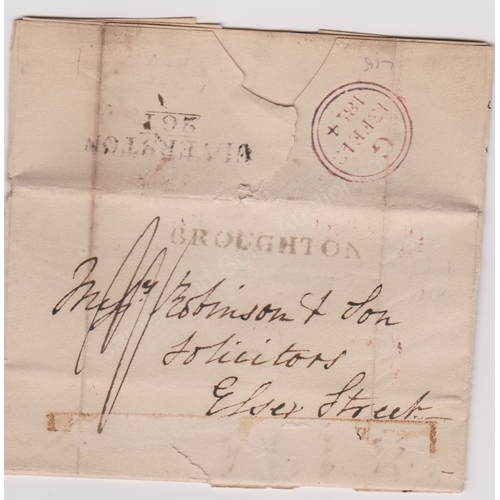 ULVERSTON
261
G
13 FE 13
1844
BROUGHTON
Messrs Robinson & Son
Solicitors
Essex Street